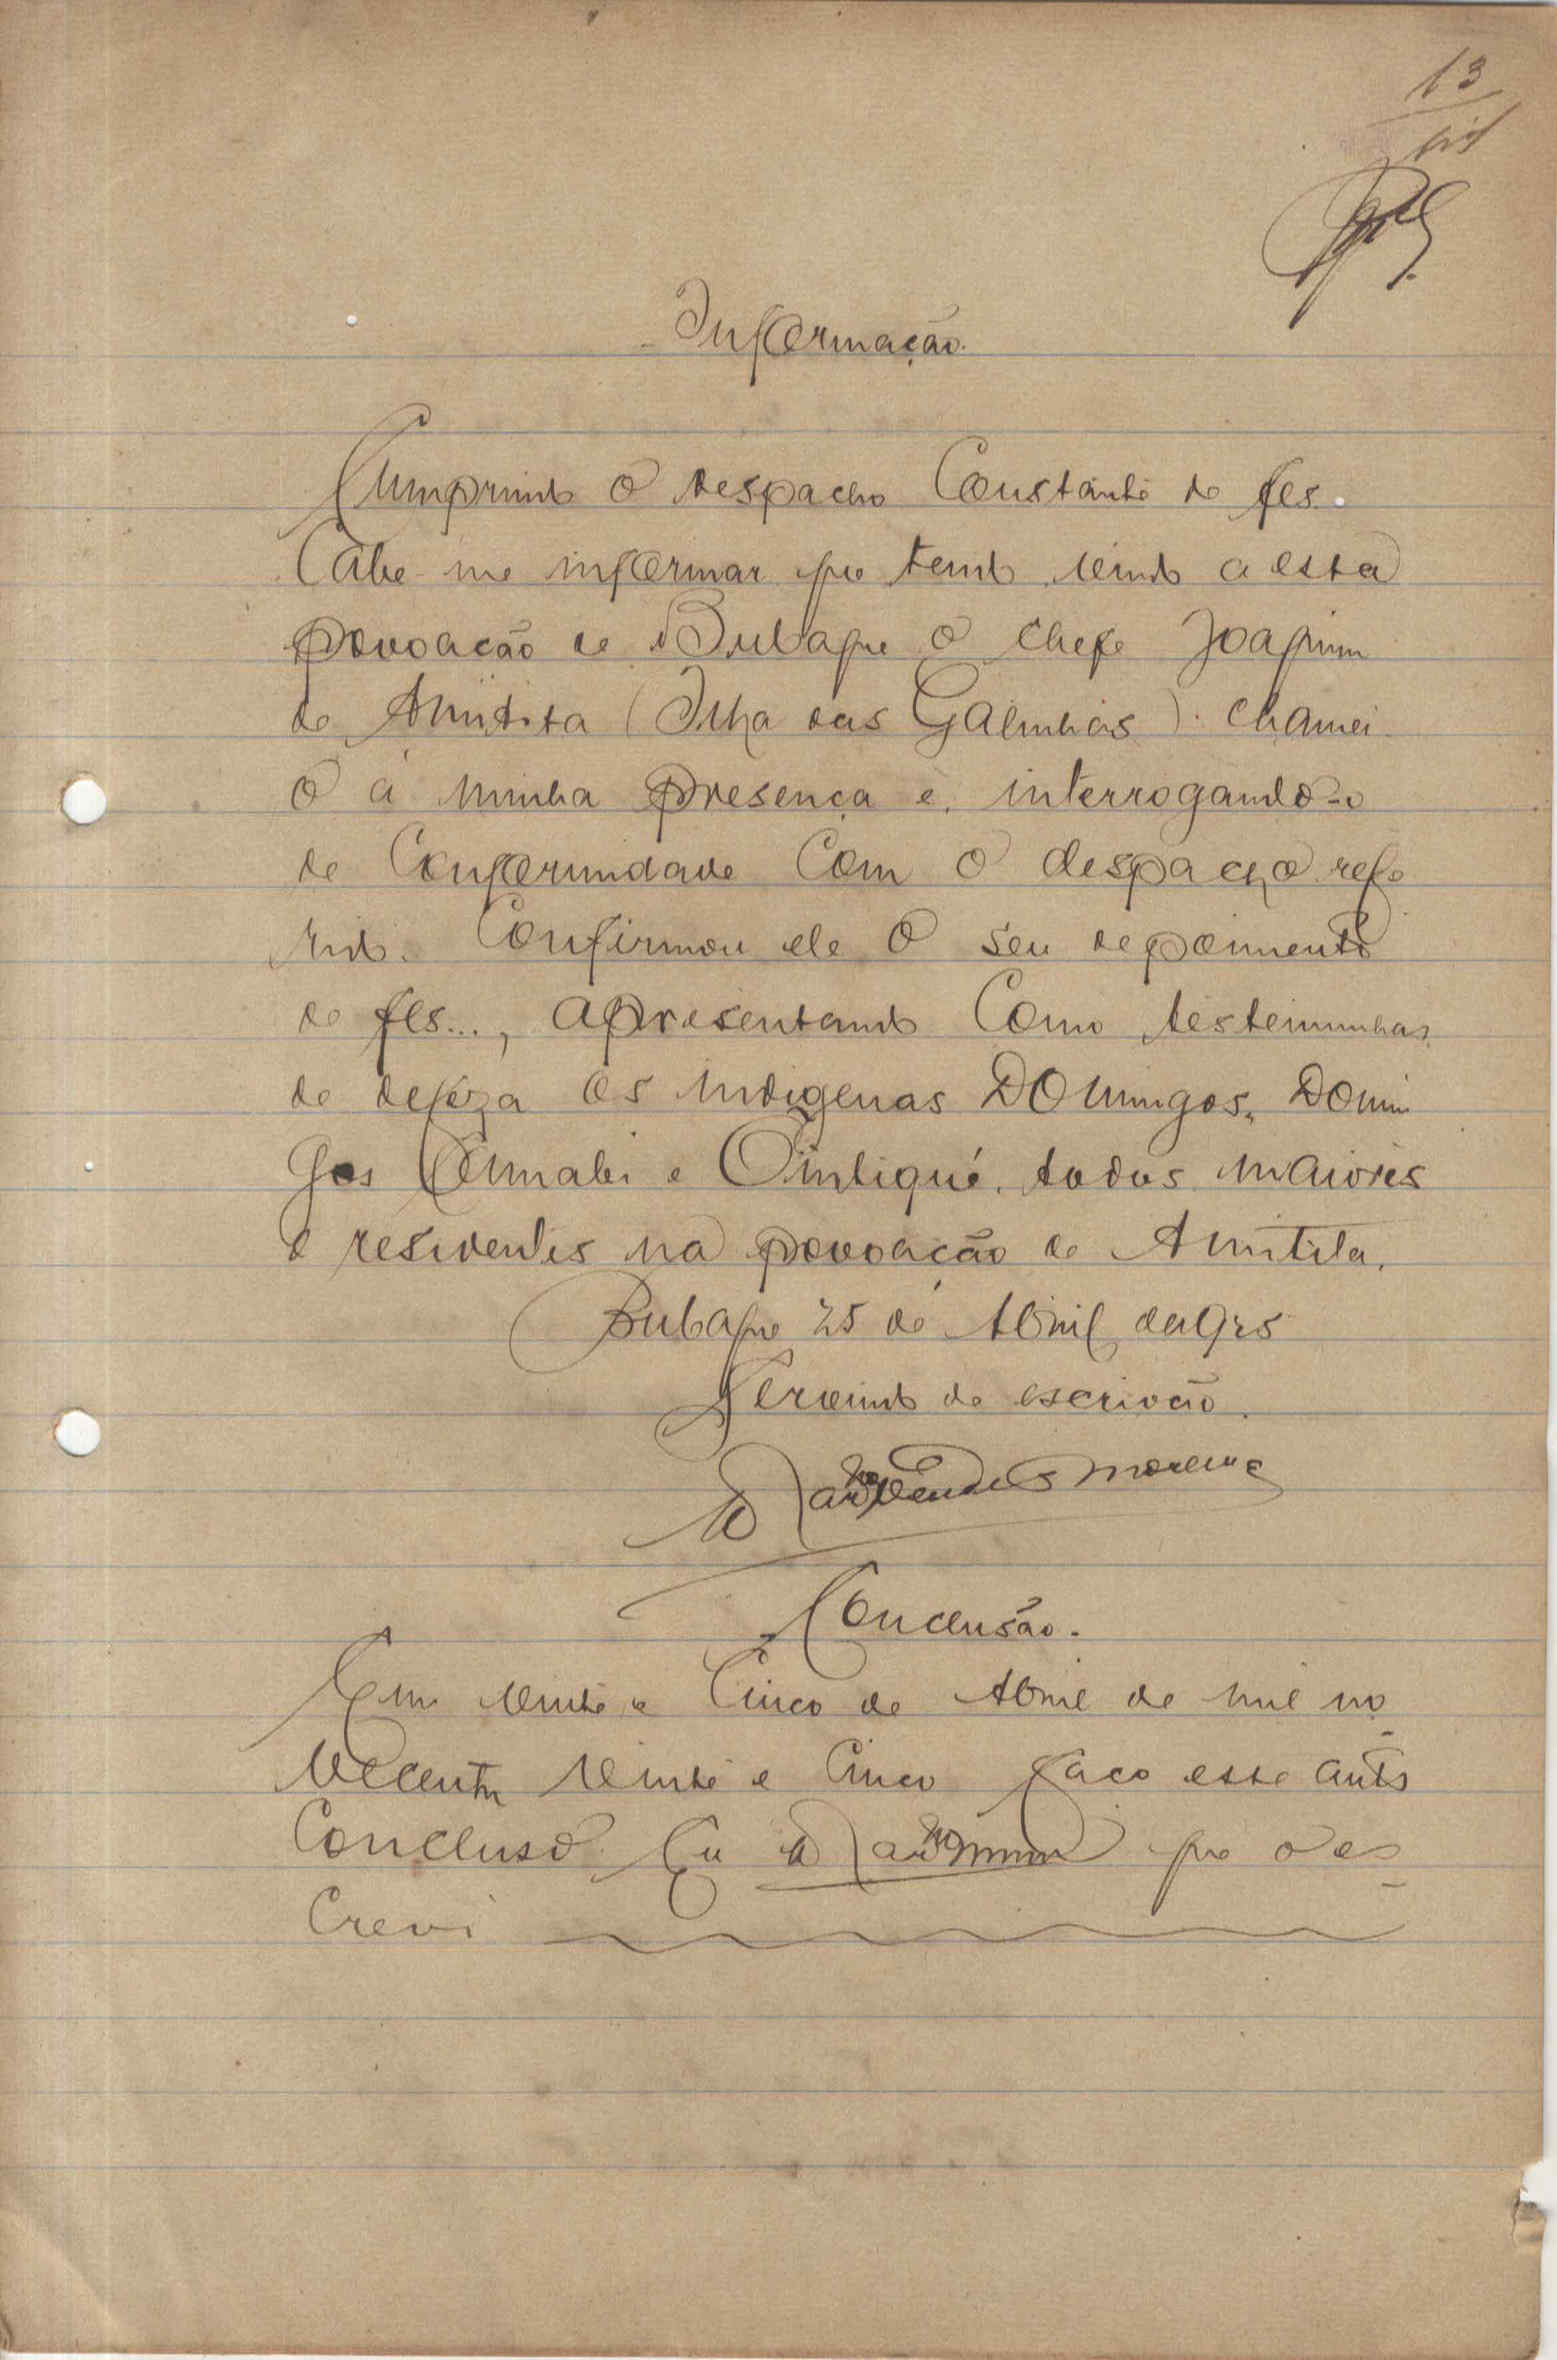 13
Informação.
Cumprindo o despacho Constante de fls.
Cabe-me informar que tendo vindo a esta
povoação de Bubaque o chefe Joaquim
de Amitita (Ilha das Galinhas). chamei
o á minha presença e, interrogando-o
de Conformidade Com o despacho refe
rido. Confirmou ele o seu depoimento
de fls..., apresentando Como testemunhas
de defeza os indigenas Domingos, Domin
gos e Ointiqué, todos maiores
e residentes na povoação de Amitita.
Bubaque 25 de Abril de 1925
Servindo de escrivão.
Mendes Moreira
Conclusão.
Em vinte e Cinco de Abril de mil no
vecentos vinte e Cinco faço este auto
Concluso. Eu que o es-
Crevi